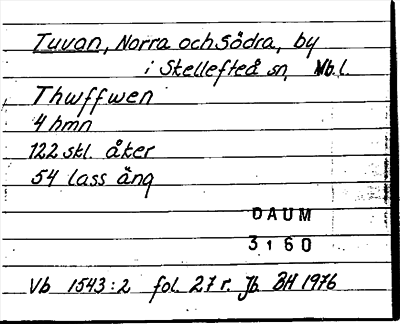 Tuvan, Norra och Södra, by
i Skellefteå sn, Nb l.
Thwffwen
4 hmn
122 skl. åker
54 lass äng
DAUM
3160
Vb 1543:2 fol. 27 r. Jb. BH 1976